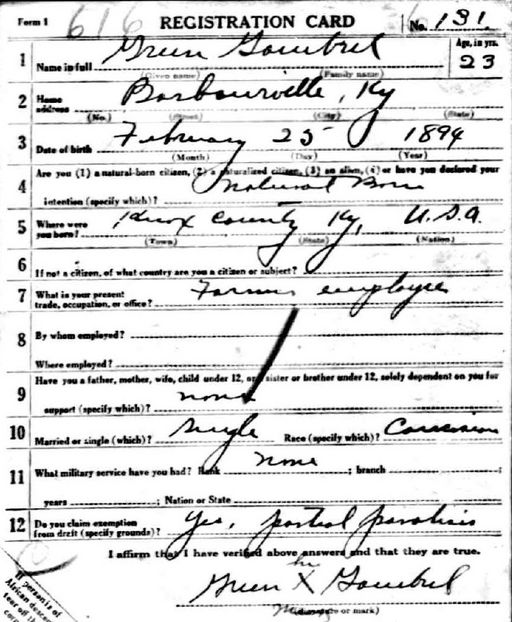 Form 1 616 REGISTRATION CARD No. 131
1 Name in full Green Gambrel Age, in yrs. 23
(Given name) (Family name)
2 Home address Barbourville, Ky
(No.) (Street) (City) (State)
3 Date of birth February 25 1894
(Month) (Day) (Year)
4 Are you (1) a natural-born citizen, (2) a naturalized citizen, (3) an alien, (4) or have you declared your
intention (specify which)? Natural Born
5 Where were you born? Knox County Ky, U.S.A.
(Town) (State) (Nation)
6 If not a citizen, of what country are you a citizen or subject?
7 What is your present trade, occupation, or office? Farmer employee
8 By whom employed?
Where employed?
9 Have you a father, mother, wife, child under 12, or sister or brother under 12, solely dependent on you for
support (specify which)? none
10 Married or single (which)? Single Race (specify which)? Caucasian
11 What military service have you had? Rank none ; branch ;
years ; Nation or State
12 Do you claim exemption from draft (specify grounds)? Yes, partial paralisis
I affirm that I have verified above answers and that they are true.
his
Green X Gambrel
mark
(Signature or mark)
If person is of
African descent
tear off this